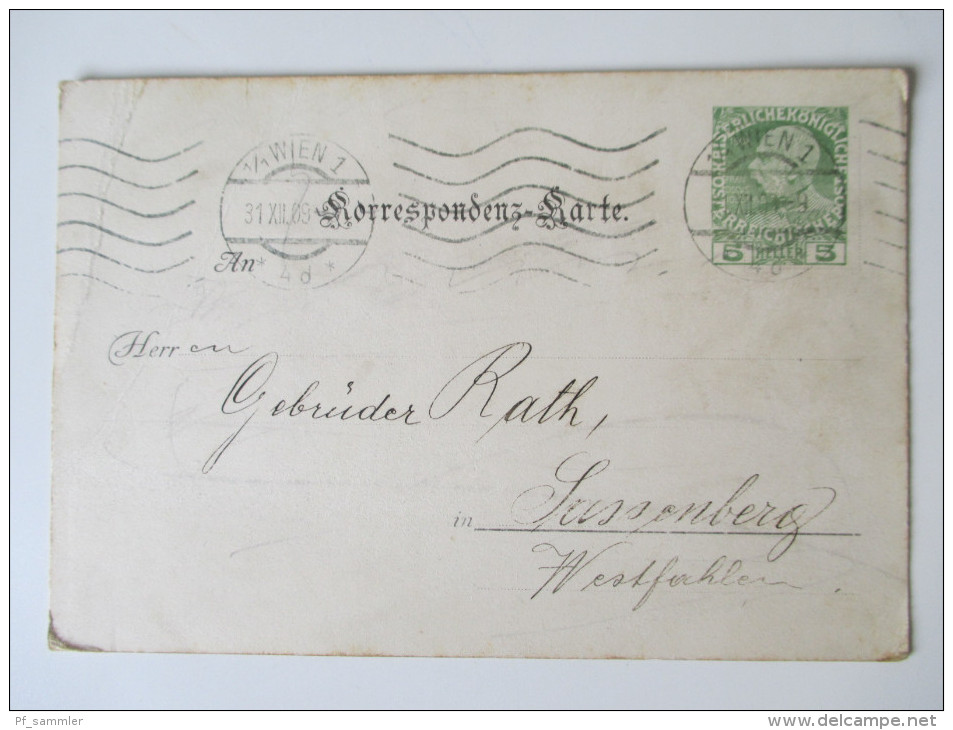 1/1 WIEN 1
31 XII.09
* 4d *
Korrespondenz-Karte.
1/1 WIEN 1
4d
KAISERLICHEKÖNIGLICHE
5 HELLER 5
An
Herren
Gebrüder Rath,
in Sassenberg
Westfahlen.
Pf_sammler
www.delcampe.net